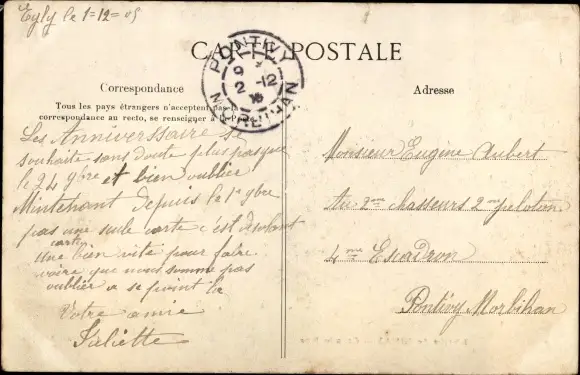 Eyly le 1=12=05
CARTE POSTALE
PONTIVY
2 -12
MORBIHAN
Correspondance
Tous les pays étrangers n'acceptent pas la
correspondance au recto, se renseigner à la Poste
Les Anniverssaire se
souhaite sans doute plus pasque
le 24 9bre et bien oublier
Mintenant depuis le 1er 9bre
pas une seule carte c'est désolant
carte
Une bien vite pour faire
voire que nous somme pas
oublier a se point la
Votre amie
Juliette
Adresse
Monsieur Eugène Aubert
Au 2me chasseurs 2me peloton
4me Escadron
Pontivy Morbihan